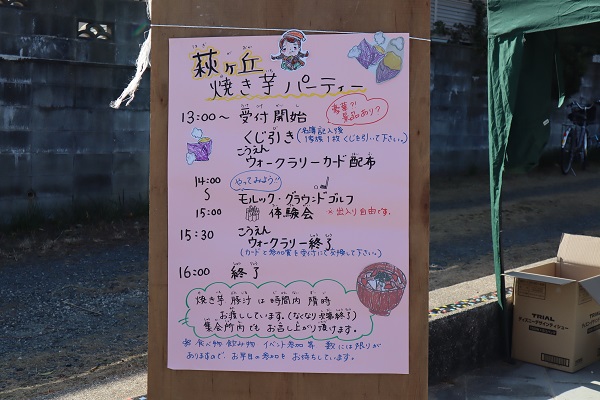 萩ヶ丘
焼き芋パーティー
13:00〜 受付開始
豪華!!
景品あり?
くじ引き
(名簿記入後
1家族1枚くじを引いて下さい。)
こうえん
ウォークラリーカード配布
14:00
〜
15:00
やってみよう!!
モルック・グラウンドゴルフ
体験会 ※出入り自由です。
15:30 こうえん
ウォークラリー終了
(カードと参加賞を受付にて交換して下さい。)
16:00 終了
焼き芋 豚汁 は 時間内 随時
お渡ししています。(なくなり次第終了)
集会所内でもお召し上がり頂けます。
※ 食べ物 飲み物 イベント参加等 数には限りが
ありますので、お早目の参加をお待ちしています。
TRIAL